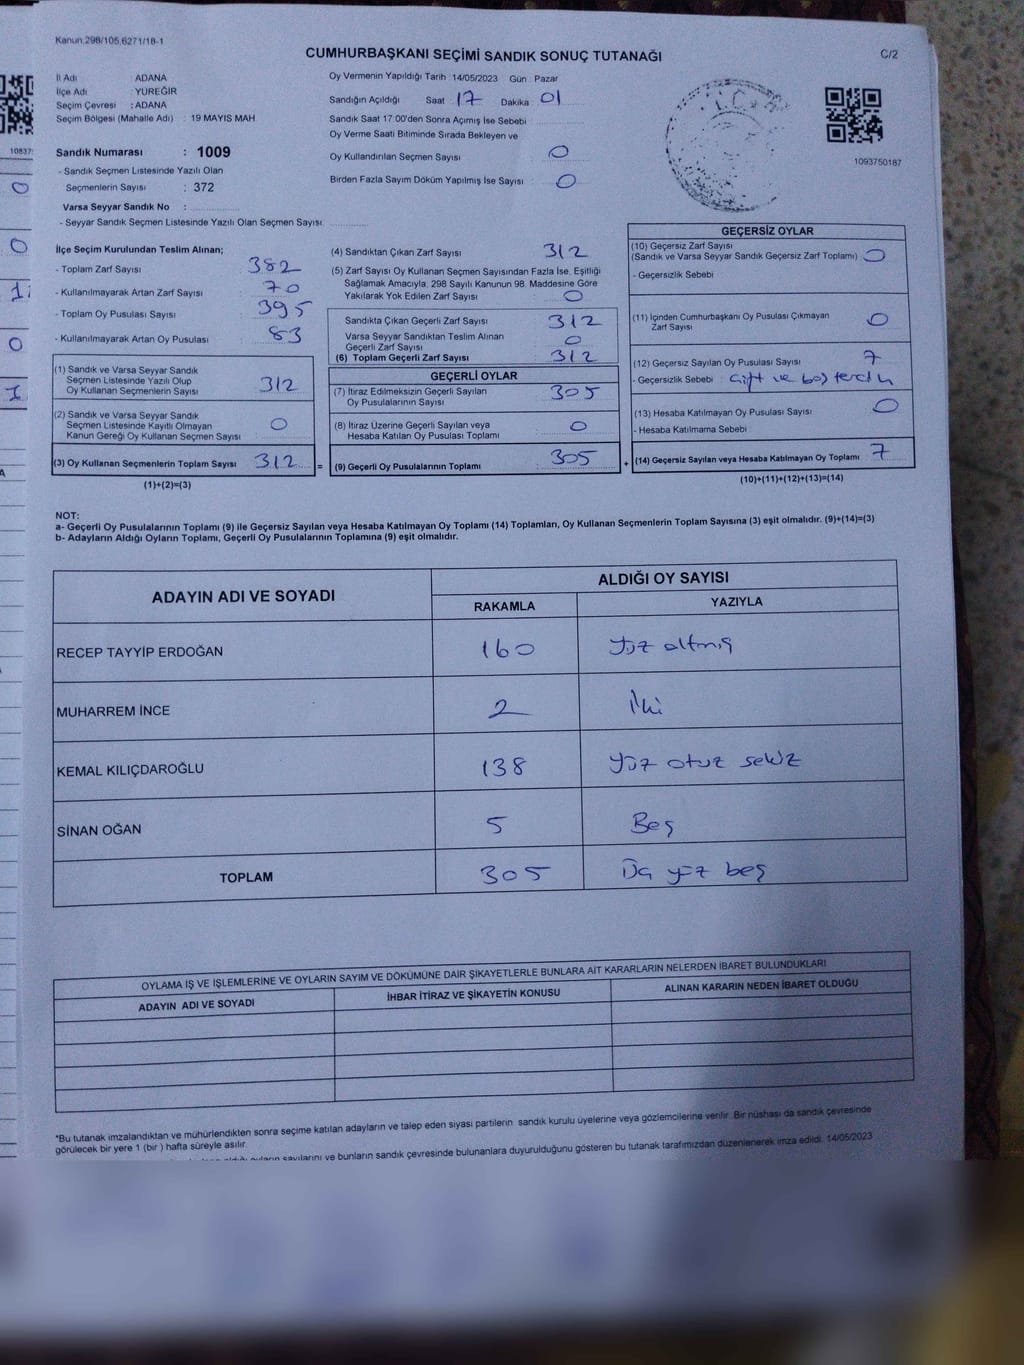 Kanun 298/105,6271/18-1
CUMHURBAŞKANI SEÇİMİ SANDIK SONUÇ TUTANAĞI
C/2
İl Adı ADANA
İlçe Adı : YÜREĞİR
Seçim Çevresi : ADANA
Seçim Bölgesi (Mahalle Adı) : 19 MAYIS MAH
Sandık Numarası : 1009
- Sandık Seçmen Listesinde Yazılı Olan
Seçmenlerin Sayısı : 372
Varsa Seyyar Sandık No :
- Seyyar Sandık Seçmen Listesinde Yazılı Olan Seçmen Sayısı
Oy Vermenin Yapıldığı Tarih : 14/05/2023 Gün : Pazar
Sandığın Açıldığı Saat 17 Dakika 01
Sandık Saat 17:00'den Sonra Açımış İse Sebebi
Oy Verme Saati Bitiminde Sırada Bekleyen ve
Oy Kullandırılan Seçmen Sayısı 0
Birden Fazla Sayım Döküm Yapılmış İse Sayısı 0
1093750187
İlçe Seçim Kurulundan Teslim Alınan;
- Toplam Zarf Sayısı 382
- Kullanılmayarak Artan Zarf Sayısı 70
- Toplam Oy Pusulası Sayısı 395
- Kullanılmayarak Artan Oy Pusulası 83
(1) Sandık ve Varsa Seyyar Sandık
Seçmen Listesinde Yazılı Olup
Oy Kullanan Seçmenlerin Sayısı 312
(2) Sandık ve Varsa Seyyar Sandık
Seçmen Listesinde Kayıtlı Olmayan
Kanun Gereği Oy Kullanan Seçmen Sayısı 0
(3) Oy Kullanan Seçmenlerin Toplam Sayısı 312 =
(1)+(2)=(3)
(4) Sandıktan Çıkan Zarf Sayısı 312
(5) Zarf Sayısı Oy Kullanan Seçmen Sayısından Fazla İse, Eşitliği
Sağlamak Amacıyla, 298 Sayılı Kanunun 98. Maddesine Göre
Yakılarak Yok Edilen Zarf Sayısı 0
Sandıkta Çıkan Geçerli Zarf Sayısı 312
Varsa Seyyar Sandıktan Teslim Alınan
Geçerli Zarf Sayısı 0
(6) Toplam Geçerli Zarf Sayısı 312
GEÇERLİ OYLAR
(7) İtiraz Edilmeksizin Geçerli Sayılan
Oy Pusulalarının Sayısı 305
(8) İtiraz Üzerine Geçerli Sayılan veya
Hesaba Katılan Oy Pusulası Toplamı 0
(9) Geçerli Oy Pusulalarının Toplamı 305 +
GEÇERSİZ OYLAR
(10) Geçersiz Zarf Sayısı
(Sandık ve Varsa Seyyar Sandık Geçersiz Zarf Toplamı) 0
- Geçersizlik Sebebi
(11) İçinden Cumhurbaşkanı Oy Pusulası Çıkmayan
Zarf Sayısı 0
(12) Geçersiz Sayılan Oy Pusulası Sayısı 7
- Geçersizlik Sebebi : Çift ve boş tercih
(13) Hesaba Katılmayan Oy Pusulası Sayısı 0
- Hesaba Katılmama Sebebi
(14) Geçersiz Sayılan veya Hesaba Katılmayan Oy Toplamı 7
(10)+(11)+(12)+(13)=(14)
NOT:
a- Geçerli Oy Pusulalarının Toplamı (9) ile Geçersiz Sayılan veya Hesaba Katılmayan Oy Toplamı (14) Toplamları, Oy Kullanan Seçmenlerin Toplam Sayısına (3) eşit olmalıdır. (9)+(14)=(3)
b- Adayların Aldığı Oyların Toplamı, Geçerli Oy Pusulalarının Toplamına (9) eşit olmalıdır.
ADAYIN ADI VE SOYADI ALDIĞI OY SAYISI
RAKAMLA YAZIYLA
RECEP TAYYİP ERDOĞAN 160 Yüz altmış
MUHARREM İNCE 2 İki
KEMAL KILIÇDAROĞLU 138 Yüz otuz sekiz
SİNAN OĞAN 5 Beş
TOPLAM 305 Üç yüz beş
OYLAMA İŞ VE İŞLEMLERİNE VE OYLARIN SAYIM VE DÖKÜMÜNE DAİR ŞİKAYETLERLE BUNLARA AİT KARARLARIN NELERDEN İBARET BULUNDUKLARI
ADAYIN ADI VE SOYADI İHBAR İTİRAZ VE ŞİKAYETİN KONUSU ALINAN KARARIN NEDEN İBARET OLDUĞU
*Bu tutanak imzalandıktan ve mühürlendikten sonra seçime katılan adayların ve talep eden siyasi partilerin sandık kurulu üyelerine veya gözlemcilerine verilir. Bir nüshası da sandık çevresinde
görülecek bir yere 1 (bir) hafta süreyle asılır.
sayılarını ve bunların sandık çevresinde bulunanlara duyurulduğunu gösteren bu tutanak tarafımızdan düzenlenerek imza edildi. 14/05/2023